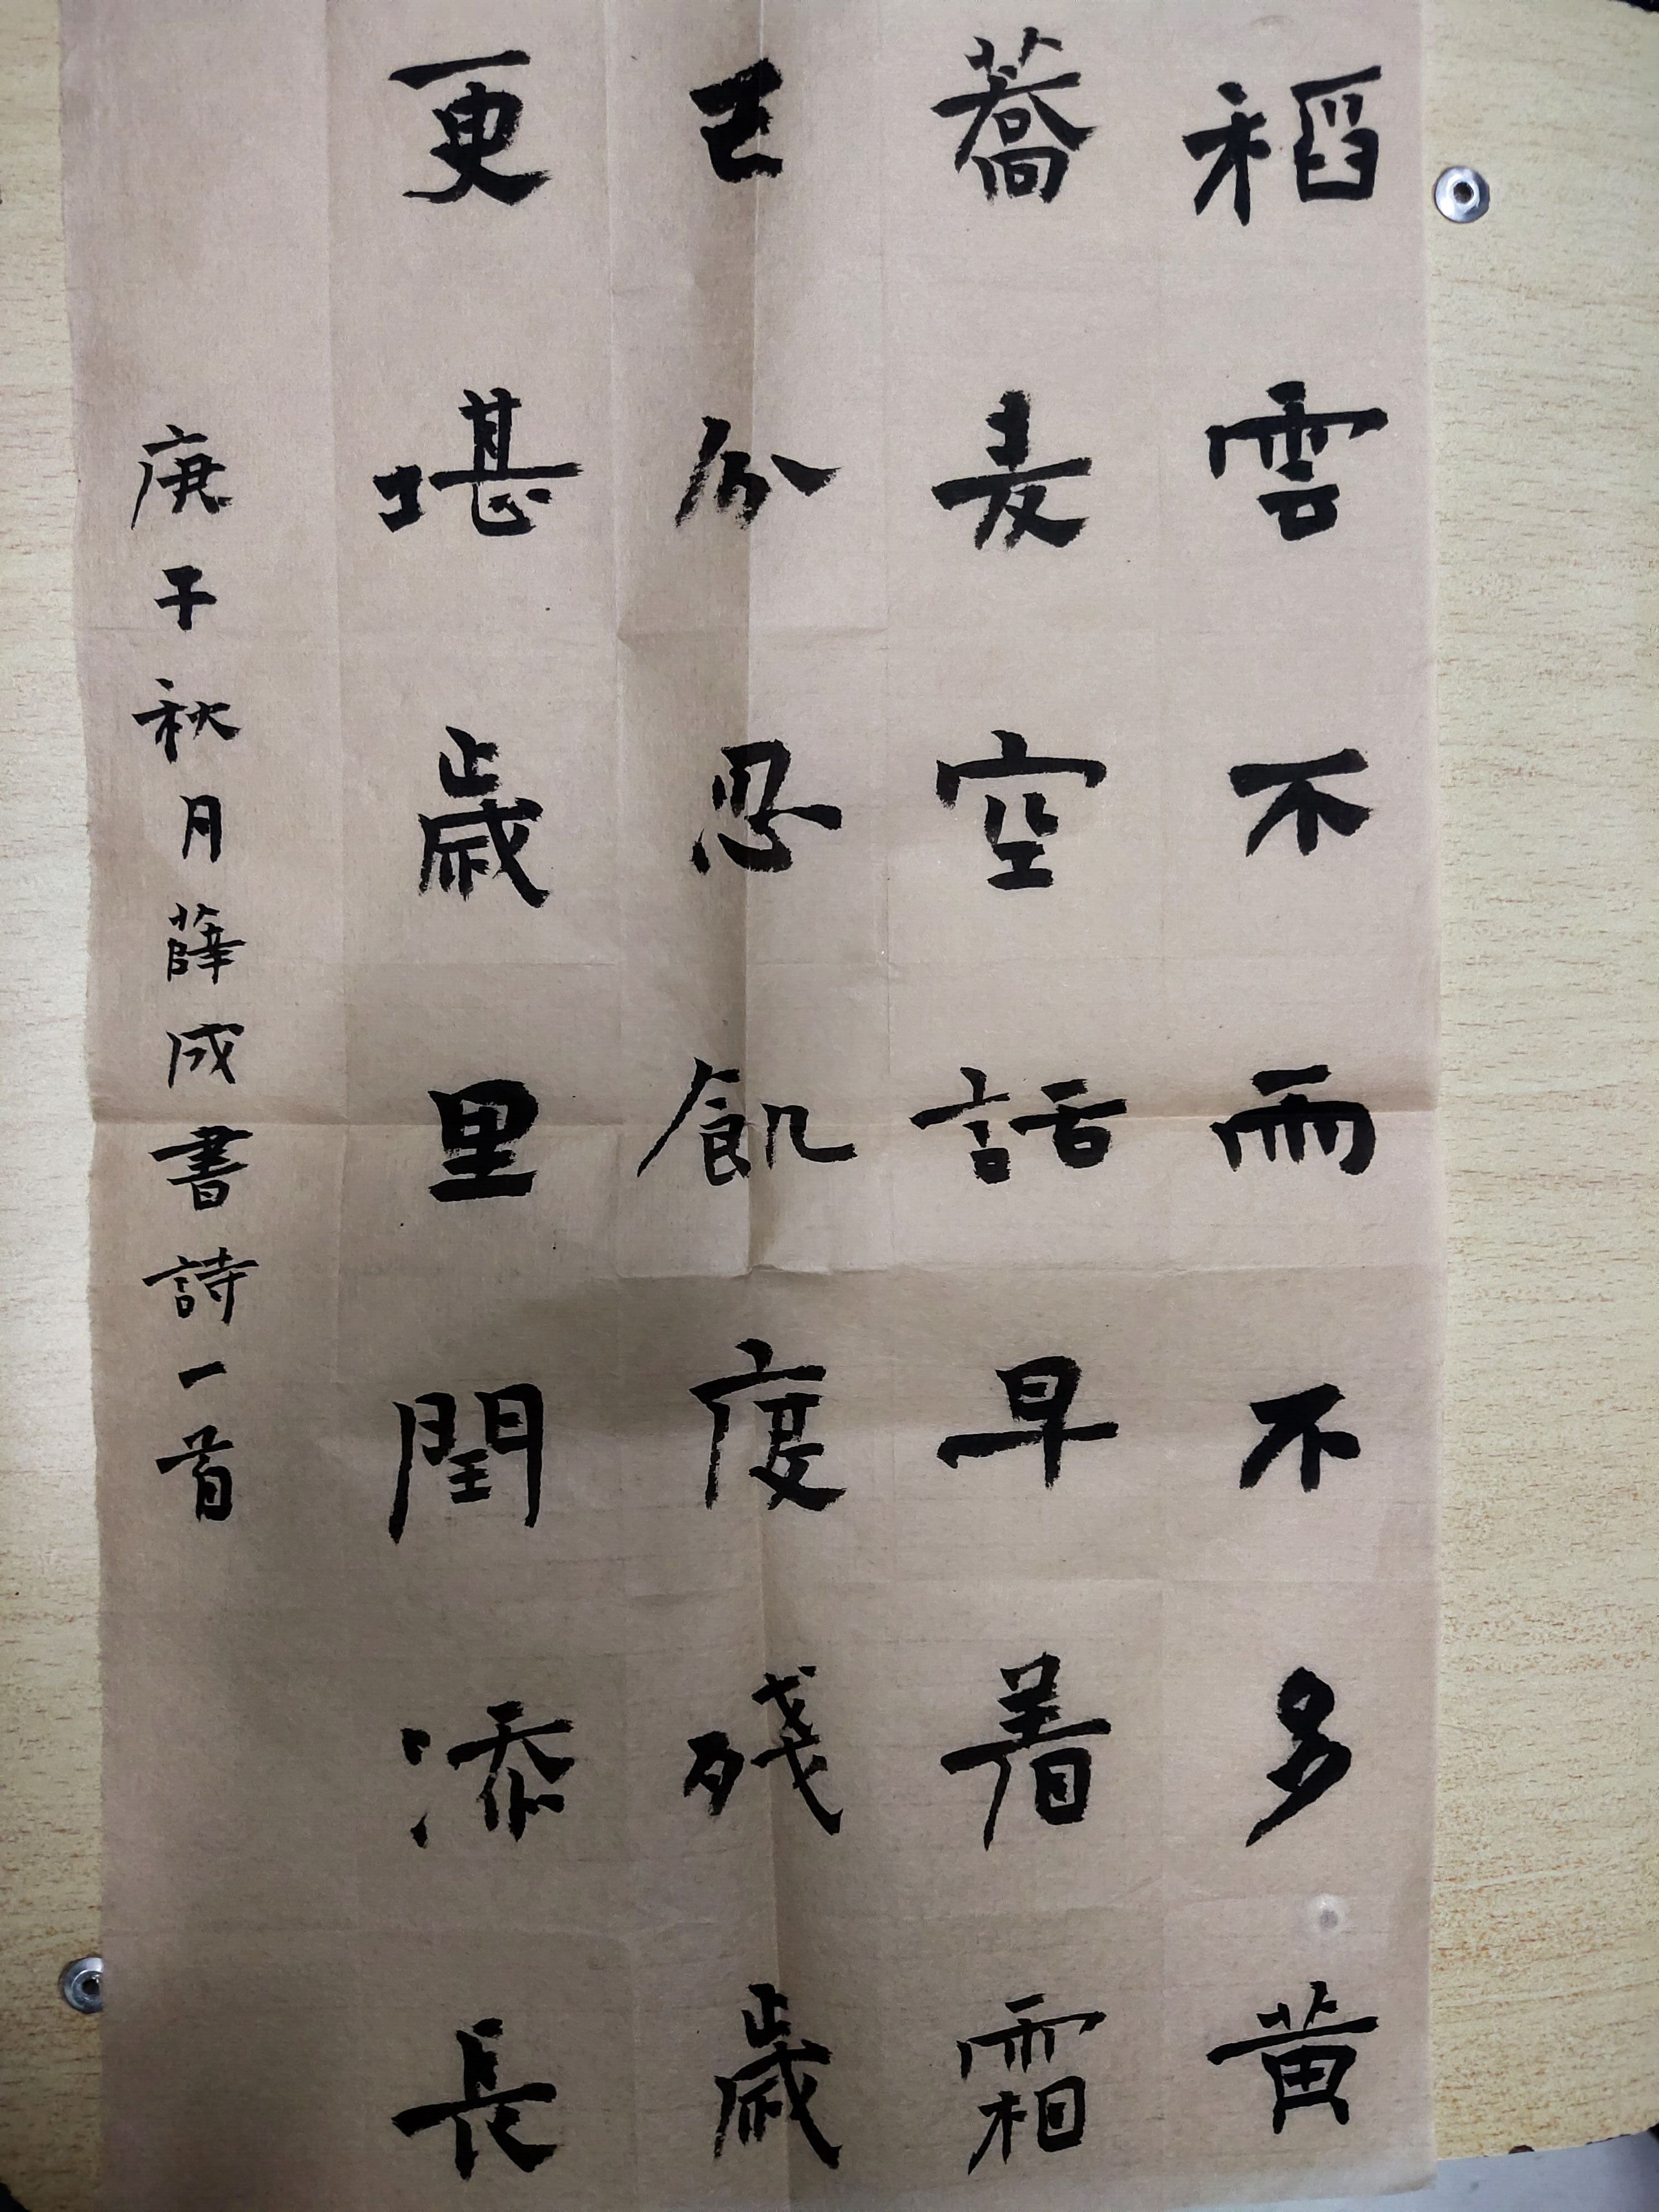 稻雲不雨不多黄
蕎麦空話早着霜
已分忍飢度殘歲
更堪歲里閏添長
庚子秋月薛成書詩一首